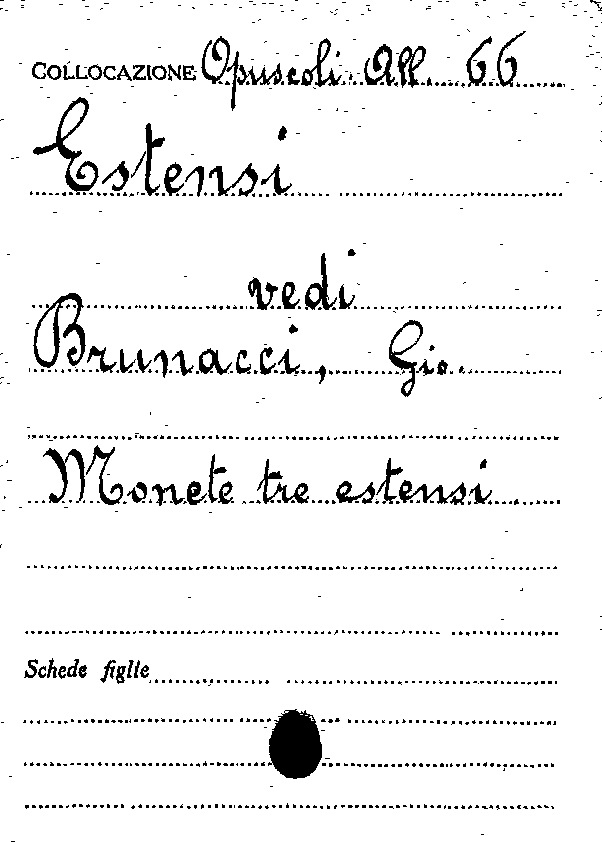 COLLOCAZIONE Opuscoli. All. 66
Estensi
vedi
Brunacci, Gio.
Monete tre estensi
Schede figlie